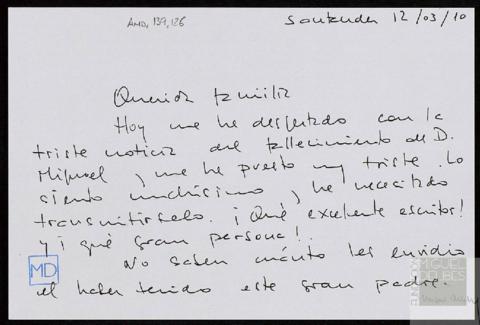 AMD, 139, 126
Santander 12/03/10
Querida familia
Hoy me he despertado con la
triste noticia del fallecimiento de D.
Miguel, me he puesto muy triste. Lo
siento muchísimo, he necesitado
transmitírselo. ¡Qué excelente escritor!
y ¡qué gran persona!
No saben cuánto les envidio
el haber tenido este gran padre.
MD
FUNDACIÓN
MIGUEL
DELIBES